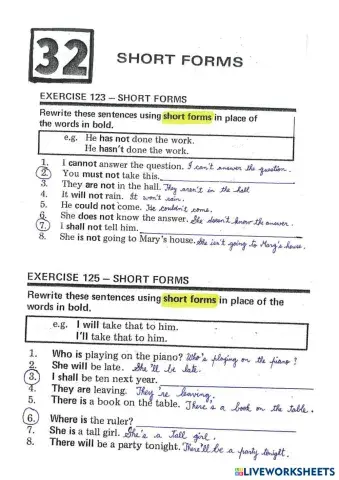 32
SHORT FORMS
EXERCISE 123 – SHORT FORMS
Rewrite these sentences using short forms in place of
the words in bold.
e.g. He has not done the work.
He hasn't done the work.
1. I cannot answer the question. I can't answer the question.
2. You must not take this.
3. They are not in the hall. They aren't in the hall
4. It will not rain. It won't rain.
5. He could not come. He couldn't come.
6. She does not know the answer. She doesn't know the answer.
7. I shall not tell him.
8. She is not going to Mary's house. She isn't going to Mary's house.
EXERCISE 125 – SHORT FORMS
Rewrite these sentences using short forms in place of the
words in bold.
e.g. I will take that to him.
I'll take that to him.
1. Who is playing on the piano? Who's playing on the piano?
2. She will be late. She'll be late.
3. I shall be ten next year.
4. They are leaving. They're leaving.
5. There is a book on the table. There's a book on the table.
6. Where is the ruler?
7. She is a tall girl. She's a tall girl.
8. There will be a party tonight. There'll be a party tonight.
LIVEWORKSHEETS